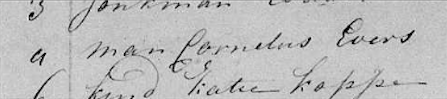 3 Jonkman
9 man Cornelus Evers
6 kind Katie Koppe